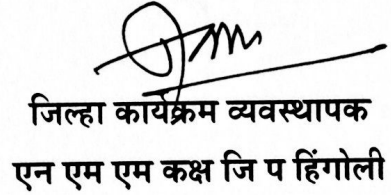 जिल्हा कार्यक्रम व्यवस्थापक
एन एम एम कक्ष जि प हिंगोली